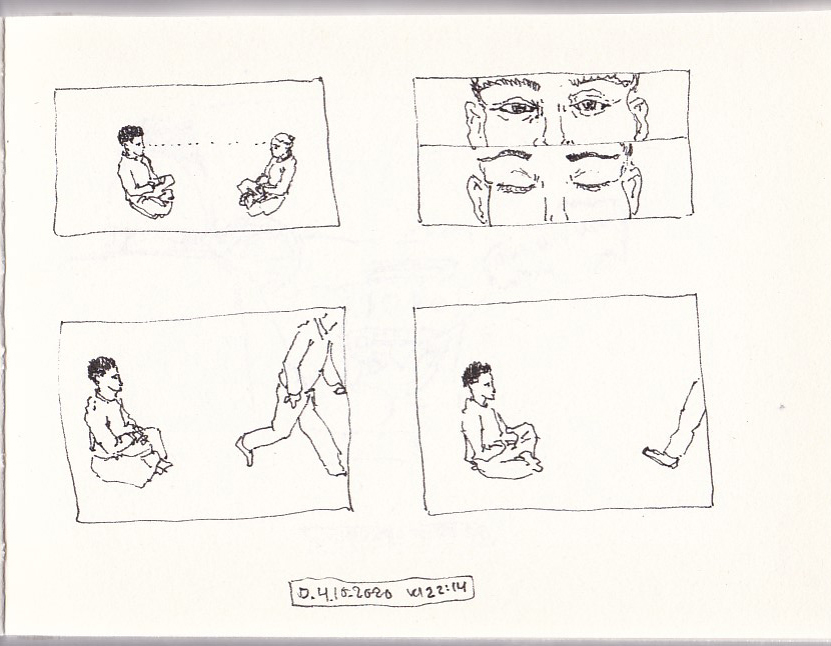 D. 4.10.2020 kl 22:14